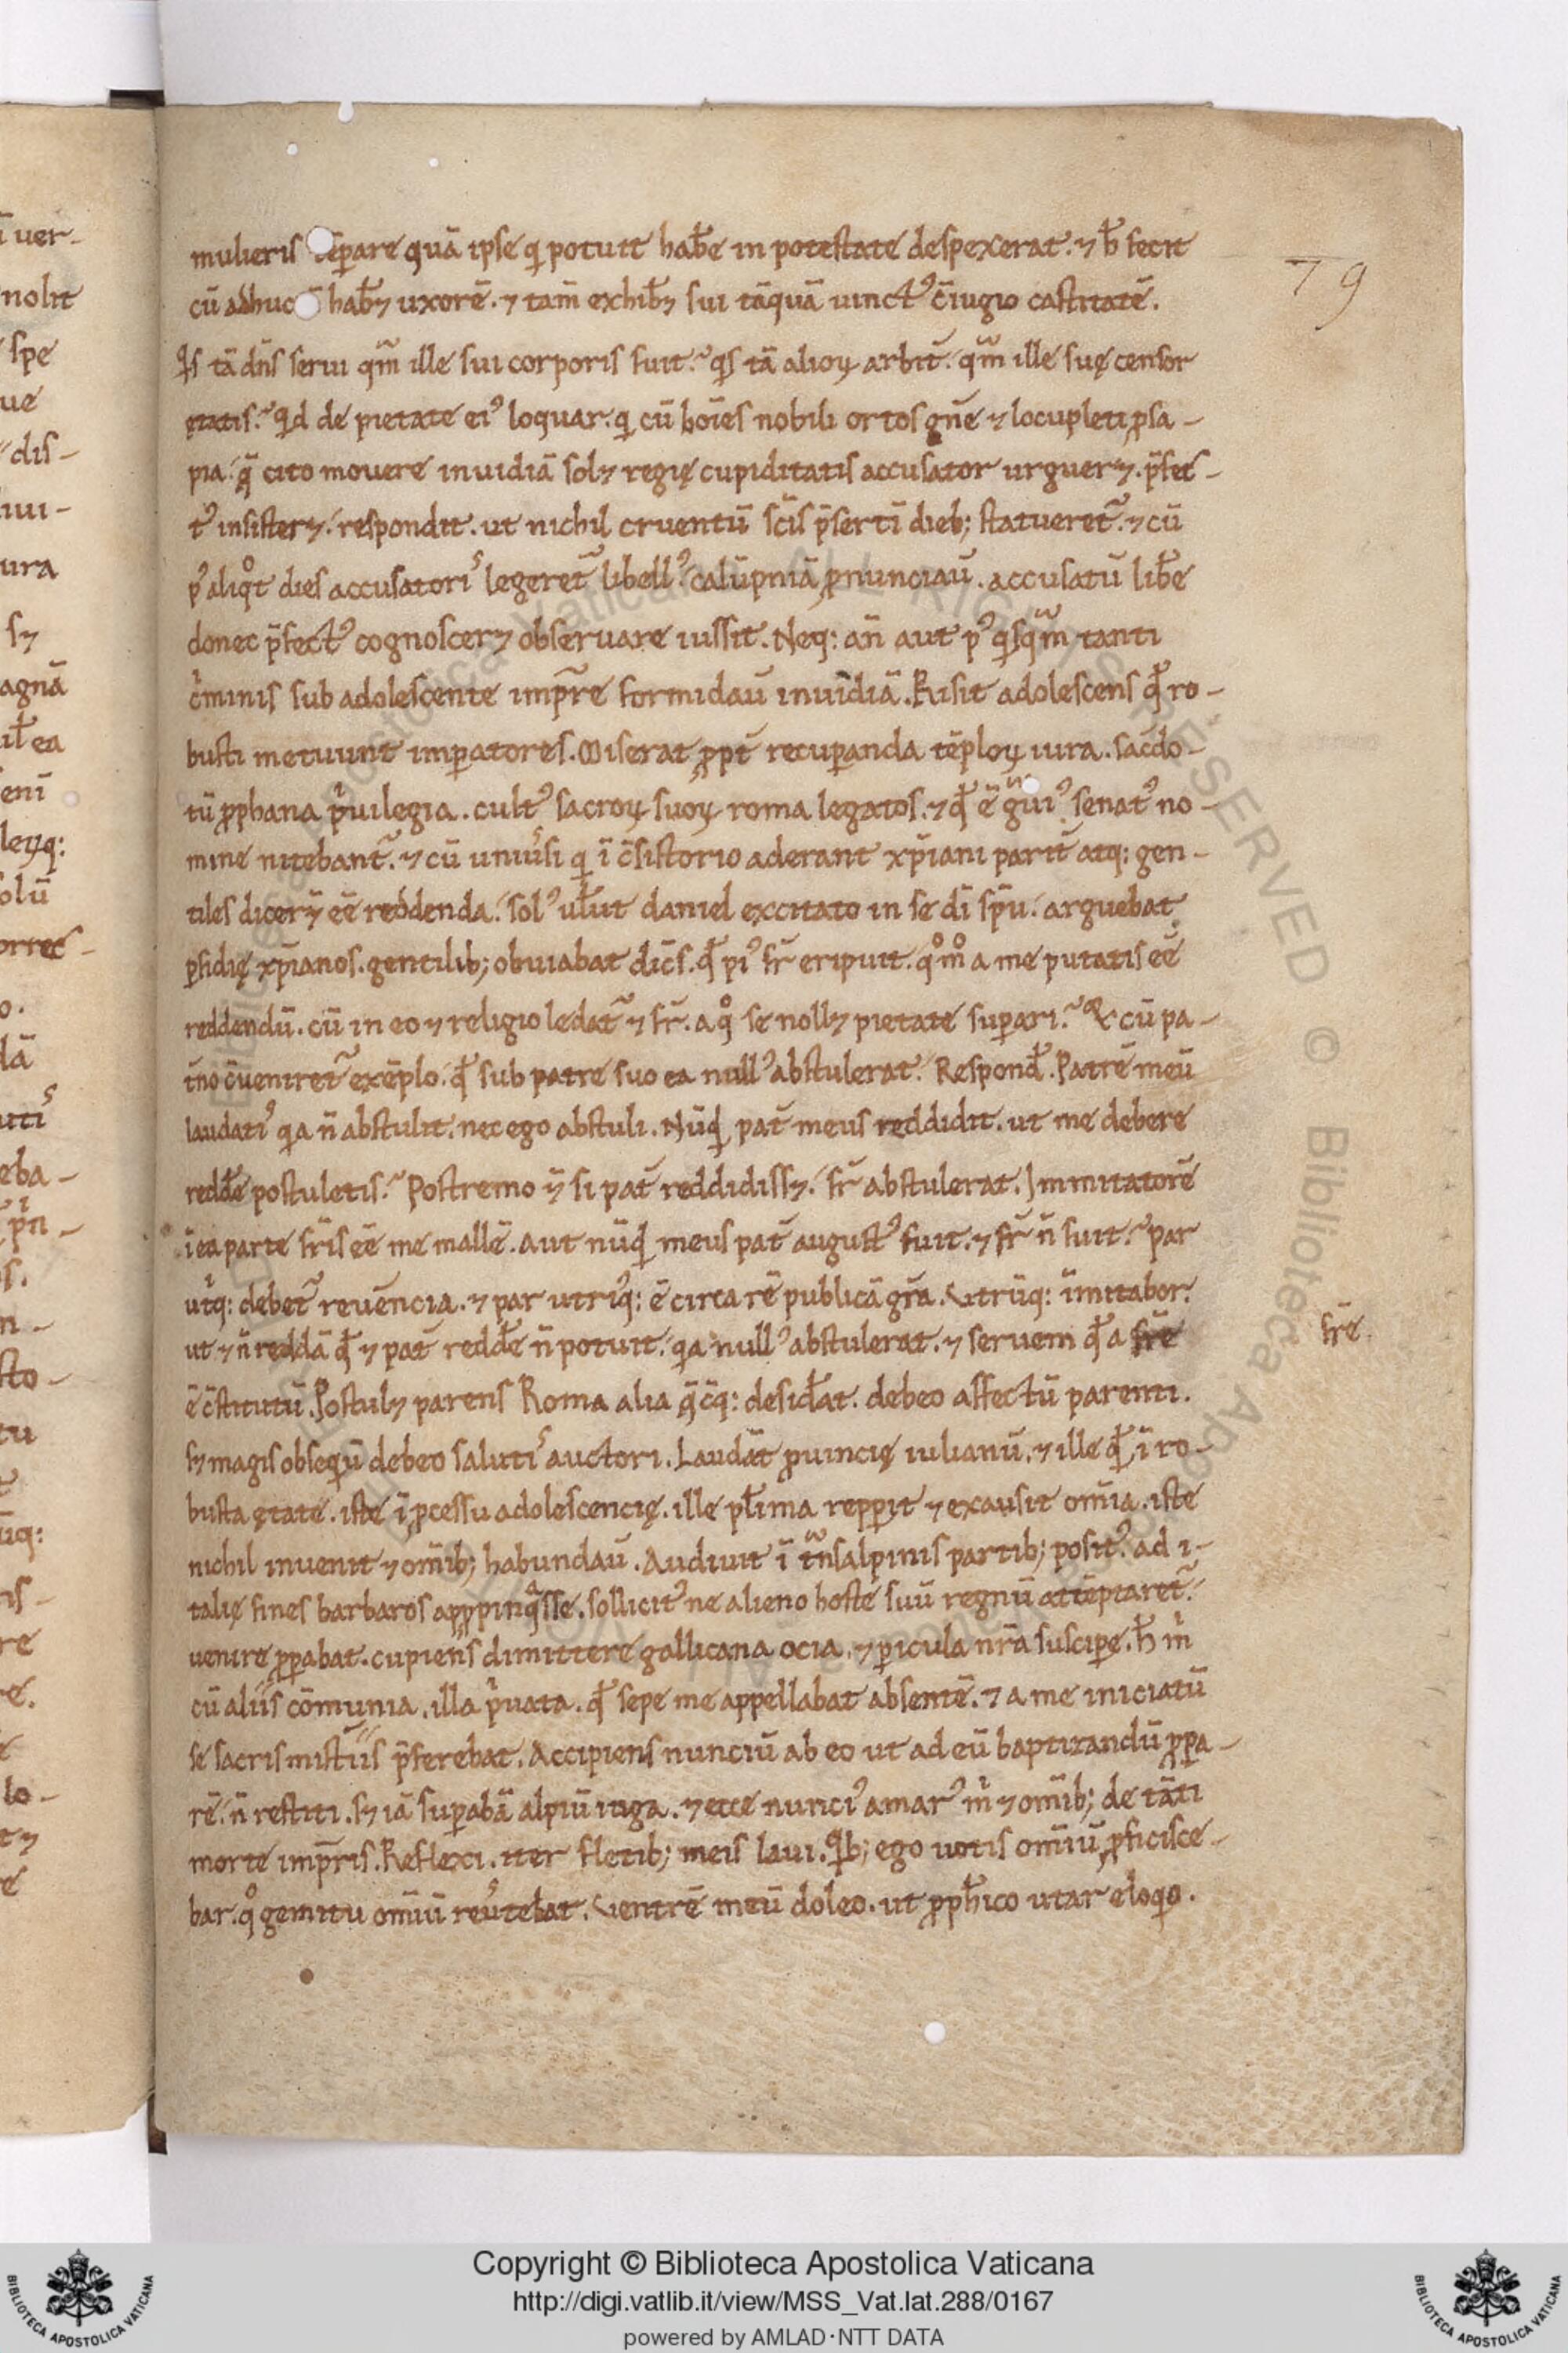 mulieris separe quā ipse q potuit hab̄e in potestate despexerat. ⁊ h̄ fecit
cū adhuc n̄ hab̄ꝫ uxorē. ⁊ tam̄ exhib̄ꝫ sui tāquā uinct᾽ c̄iugio castitatē.
Qs tā dn̄s serui qm̄ ille sui corporis fuit? qs tā alioꝝ arbit̄. qm̄ ille suę censor
ętatis? Qd de pietate ei᾽ loquar. q cū hoīes nobili ortos gn̄e ⁊ locupleti ꝓsa-
pia. q̄ cito mouere inuidiā solꝫ regię cupiditatis accusator urguerꝫ. p̄fec-
t᾽ insisterꝫ. respondit. ut nichil cruentū sc̄is p̄sertī dieb; statueret᷑. ⁊ cū
p᾽ aliqͦt dies accusatori᾽ legeret᷑ libell᾽. calūpniā ꝓnunciau̅. accusatū lib̄e
donec p̄fect᾽ cognoscerꝫ obseruare iussit. Neq: an̄ aut p᾽ qsqm̄ tanti
c̍minis sub adolescente imp̄re formidau̅ inuidiā. Risit adolescens qđ ro-
busti metuunt imꝑatores. Miserat ꝓpt̄ recuꝑanda tēploꝝ iura. sac̄do-
tū ꝓphana p̍uilegia. cult᾽ sacroꝝ suoꝝ roma legatos. ⁊ qđ ē g̈ui᾽. senat᾽ no-
mine nitebant᷑. ⁊ cū uniu᾽si q ī c̄sistorio aderant xp̄iani parit̄ atq: gen-
tiles dicerꝫ ēe reddenda. sol᾽ uƚut daniel excitato in se dī sp̄u. arguebat
ꝑfidię xp̄ianos. gentilib; obuiabat dic̄s. qđ pi᾽ fr̄ eripuit. qͦmͦ a me putatis ēe
reddendū. cū in eo ⁊ religio ledat᷑ ⁊ fr̄. a qͦ se nollꝫ pietate suꝑari? & cū pa-
t̄no c̄ueniret᷑ exēplo. qđ sub patre suo ea null᾽ abstulerat. Respond̄. Patrē meū
laudati᾽ qa n̄ abstulit. nec ego abstuli. Nūqd pat̄ meus reddidit. ut me debere
redd̄e postuletis? Postremo ⁊ si pat̄ reddidissꝫ. fr̄ abstulerat. Immitatorē
ī ea parte fr̄is ēe me mallē. aut nūqd meus pat̄ august᾽ fuit. ⁊ fr̄ n̄ fuit? par
ut̍q: debet᷑ reuēncia. ⁊ par utri᾽q: ē circa rē publicā gr̄a. Utrūq: īmitabor.
ut ⁊ n̄ reddā qđ ⁊ pat̄ redd̄e n̄ potuit. qa null᾽ abstulerat. ⁊ seruem qđ a fr̄e
fr̄e.
ē c̄stitutū. Postulꝫ parens Roma alia q̄cq: desid̄at. debeo affectū parenti.
sꝫ magis obseqū debeo saluti᾽ auctori. Laudāt ꝓuincię iulianū. ⁊ ille qdē ī ro-
busta ętate. iste ī ꝓcessu adolescencię. ille pƚima repꝑit ⁊ exausit om̄ia. iste
nichil inuenit ⁊ om̄ib; habundau̅. Audiuit ī tn̄salpinis partib; posit᾽. ad i-
talię fines barbaros apꝓpinqͣsse. sollicit᾽ ne alieno hoste suū regnū attēptaret᷑.
uenire ꝓꝑabat. cupiens dimittere gallicana ocia. ⁊ ꝑicula nr̄a suscipe. h̄ m̍
cū aliis cōmunia. illa p̍uata. qđ sepe me appellabat absentē. ⁊ a me iniciatū
se sacris mist̄iis p̄ferebat. Accipiens nunciū ab eo ut ad eū baptizandū ꝓꝑa-
rē. n̄ restiti. sꝫ iā suꝑabā alpiū iuga. ⁊ ecce nunci᾽ amar᾽ m̍ ⁊ om̄ib; de tāti
morte imp̄ris. Reflexi. iter fletib; meis laui. Qb; ego uotis om̄iū ꝓficisce-
bar. qͦ gemitu om̄iū reu᾽tebat. Uentrē meū doleo. ut ꝓph̄ico utar eloqo.
79
Copyright © Biblioteca Apostolica Vaticana
http://digi.vatlib.it/view/MSS_Vat.lat.288/0167
powered by AMLAD·NTT DATA
BIBLIOTECA APOSTOLICA VATICANA
BIBLIOTECA APOSTOLICA VATICANA